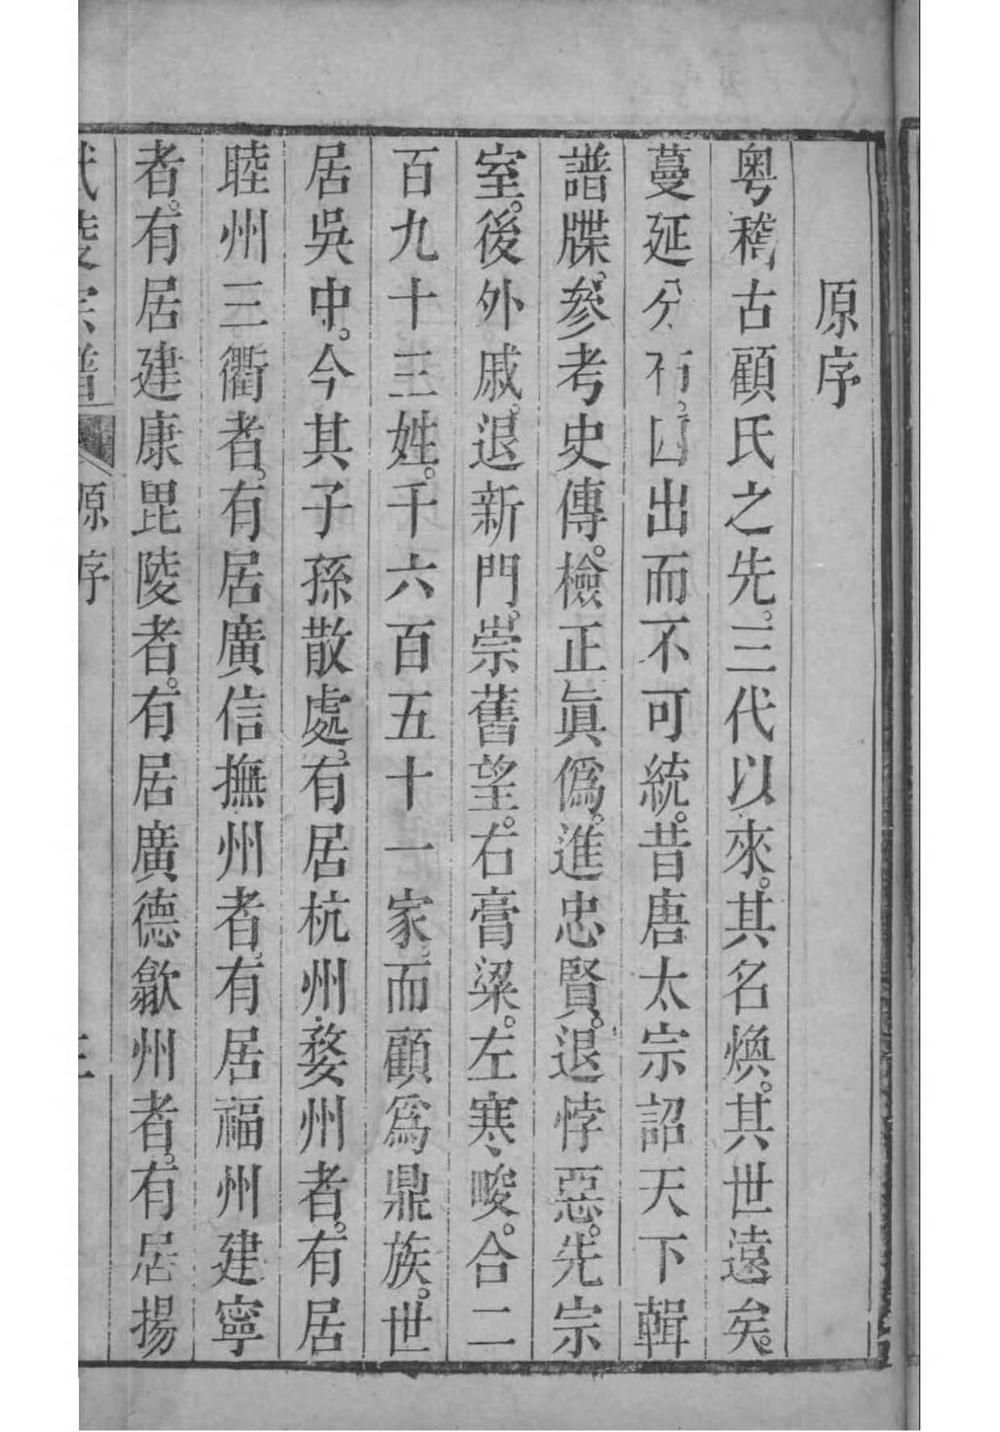 原序
粤稽古顧氏之先。三代以來。其名煥。其世遠矣。
蔓延分 出而不可統。昔唐太宗詔天下輯
譜牒。參考史傳。檢正眞僞。進忠賢。退悖惡。先宗
室。後外戚。退新門。崇舊望。右膏粱。左寒畯。合二
百九十三姓。千六百五十一家。而顧爲鼎族。世
居吳中。今其子孫散處。有居杭州婺州者。有居
睦州三衢者。有居廣信撫州者。有居福州建寧
者。有居建康毘陵者。有居廣德歙州者。有居揚
武陵宗譜 原序